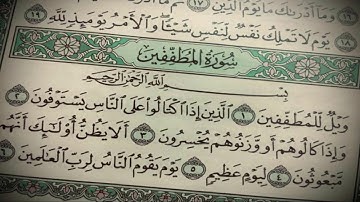 وَمَا أَدْرَىٰكَ مَا يَوْمُ الدِّينِ ١٧
١٨ يَوْمَ لَا تَمْلِكُ نَفْسٌ لِّنَفْسٍ شَيْـًٔا وَالْأَمْرُ يَوْمَئِذٍ لِّلَّهِ ١٩
سُورَةُ الْمُطَفِّفِينَ
بِسْمِ اللَّهِ الرَّحْمَٰنِ الرَّحِيمِ
وَيْلٌ لِّلْمُطَفِّفِينَ ١ الَّذِينَ إِذَا اكْتَالُوا عَلَى النَّاسِ يَسْتَوْفُونَ ٢
وَإِذَا كَالُوهُمْ أَو وَّزَنُوهُمْ يُخْسِرُونَ ٣ أَلَا يَظُنُّ أُولَٰئِكَ أَنَّهُم
مَّبْعُوثُونَ ٤ لِيَوْمٍ عَظِيمٍ ٥ يَوْمَ يَقُومُ النَّاسُ لِرَبِّ الْعَالَمِينَ ٦